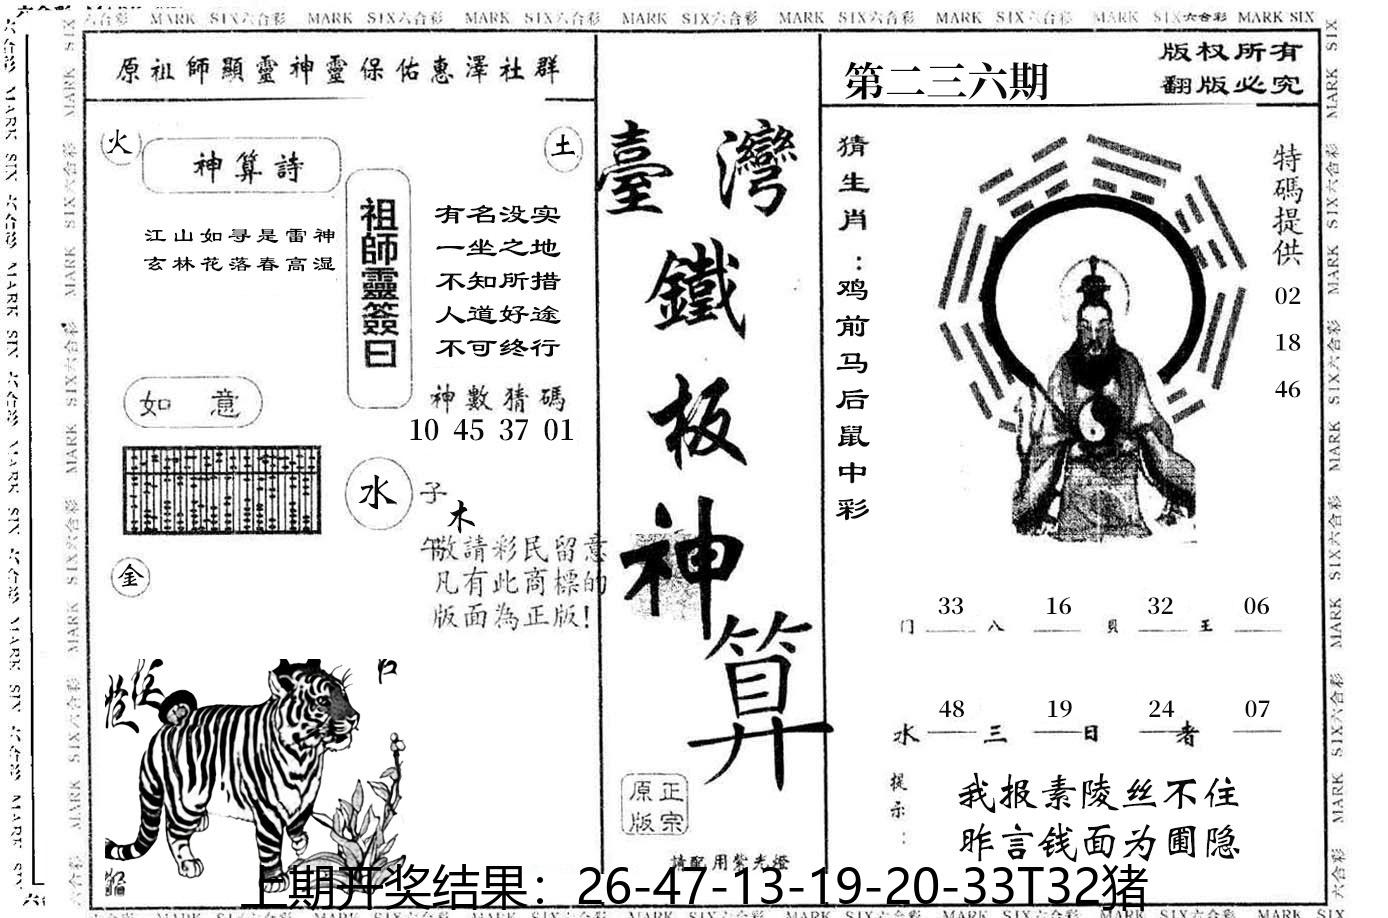 六合彩 MARK SIX六合彩 MARK SIX六合彩 MARK SIX六合彩 MARK SIX六合彩 MARK SIX六合彩 MARK SIX六合彩 MARK SIX六合彩 MARK SIX
原祖師顯靈神靈保佑惠澤社群
火
神算詩
土
江山如寻是雷神
玄林花落春高湿
祖師靈簽曰
有名没实
一坐之地
不知所措
人道好途
不可终行
神數猜碼
10 45 37 01
如意
水
子
木
午
金
敬請彩民留意
凡有此商標的
版面為正版!
臺灣
鐵
板
神
算
原正
版宗
請配用紫光燈
第二三六期
版权所有
翻版必究
猜生肖:鸡前马后鼠中彩
特碼提供
02
18
46
门 33 八 16 貝 32 王 06
水 48 三 19 日 24 者 07
提示:
我报素陵丝不住
昨言钱面为圃隐
上期开奖结果：26-47-13-19-20-33T32猪